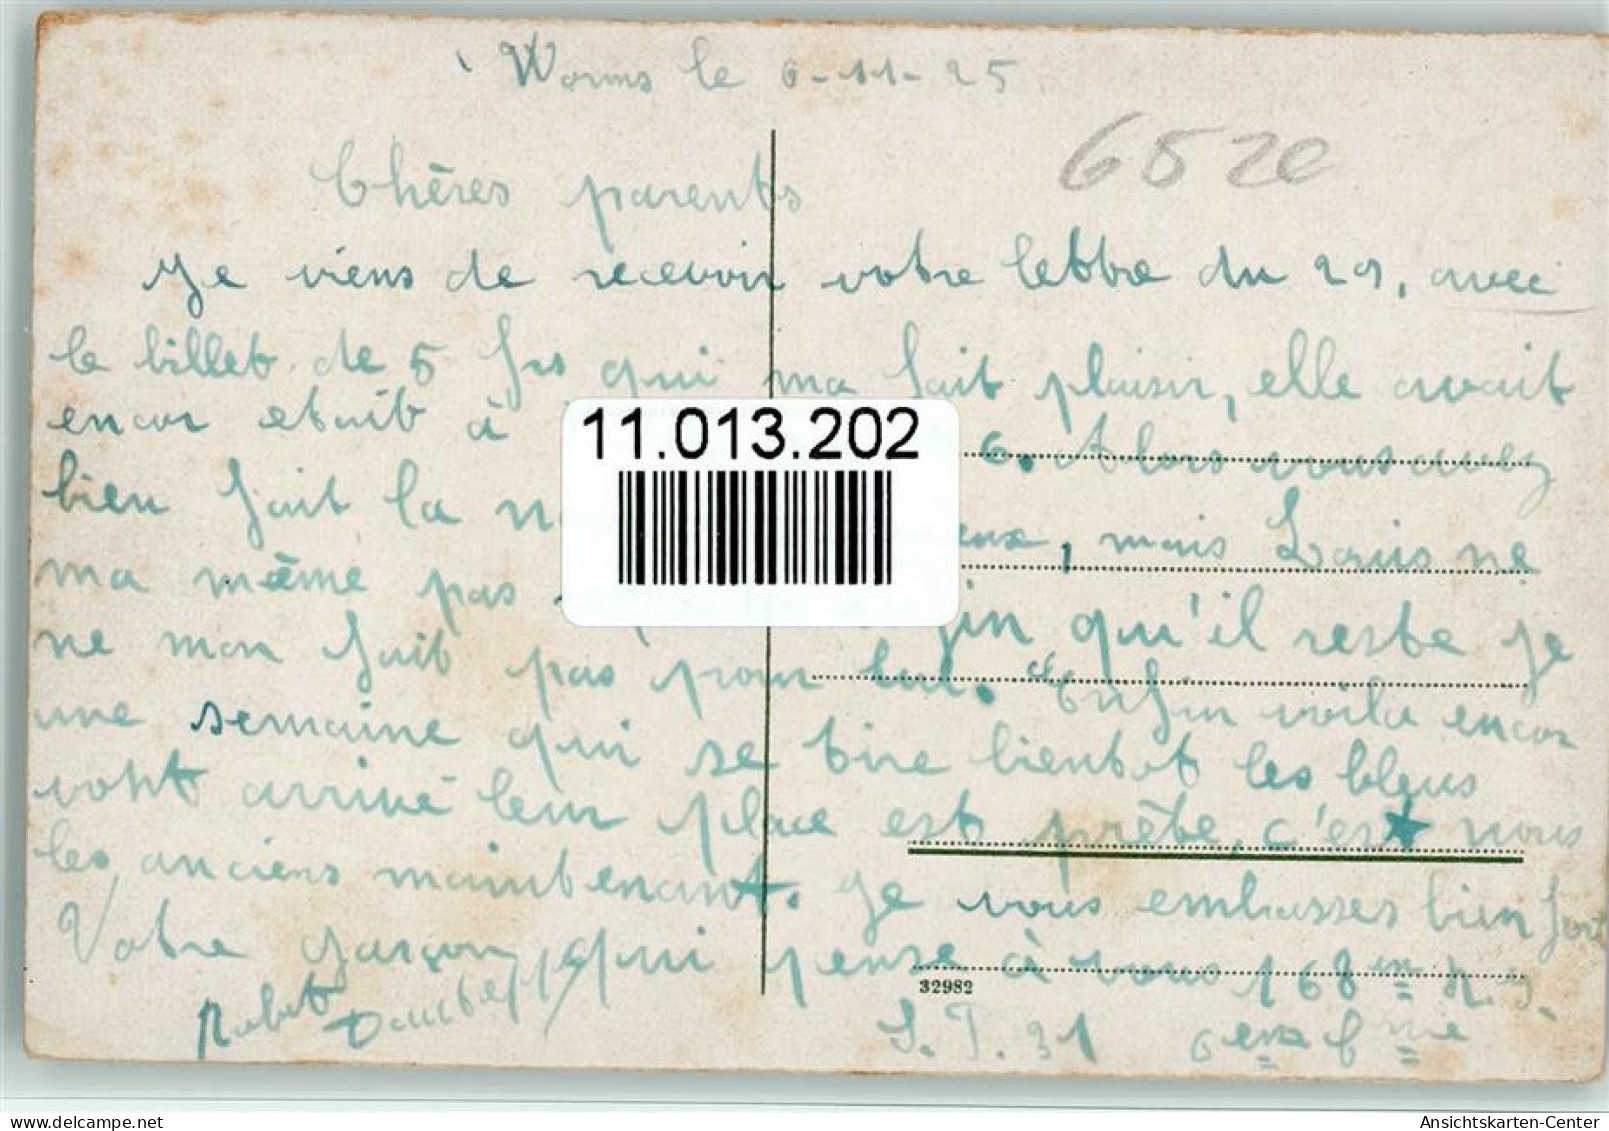 Worms le 6-11-25
6520
Chères parents
Je viens de recevoir votre lettre du 29, avec
le billet de 5 frs qui ma fait plaisir, elle avait
encor etait à 6. Alors vous avez
11.013.202
bien fait la eux, mais Louis ne
ma même pas fin qu'il reste je
ne mon fait pas pour lui. Enfin voila encor
une semaine qui se tire bientot les bleus
vont arrivé leur place est prête, c'est nous
les anciens maintenant. Je vous embrasses bien fort
Votre garçon qui pense à vous 168 em R.I.
32982
Robert
S.P. 31 6 em C nie
Ansichtskarten-Center